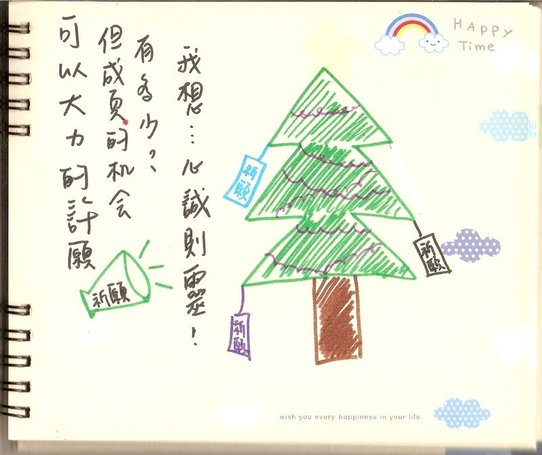 HAPPY
Time
我想…心誠則靈!
有多少?
但成真的机会
可以大力的許願
祈願
祈願
祈願
祈願
wish you every happiness in your life.